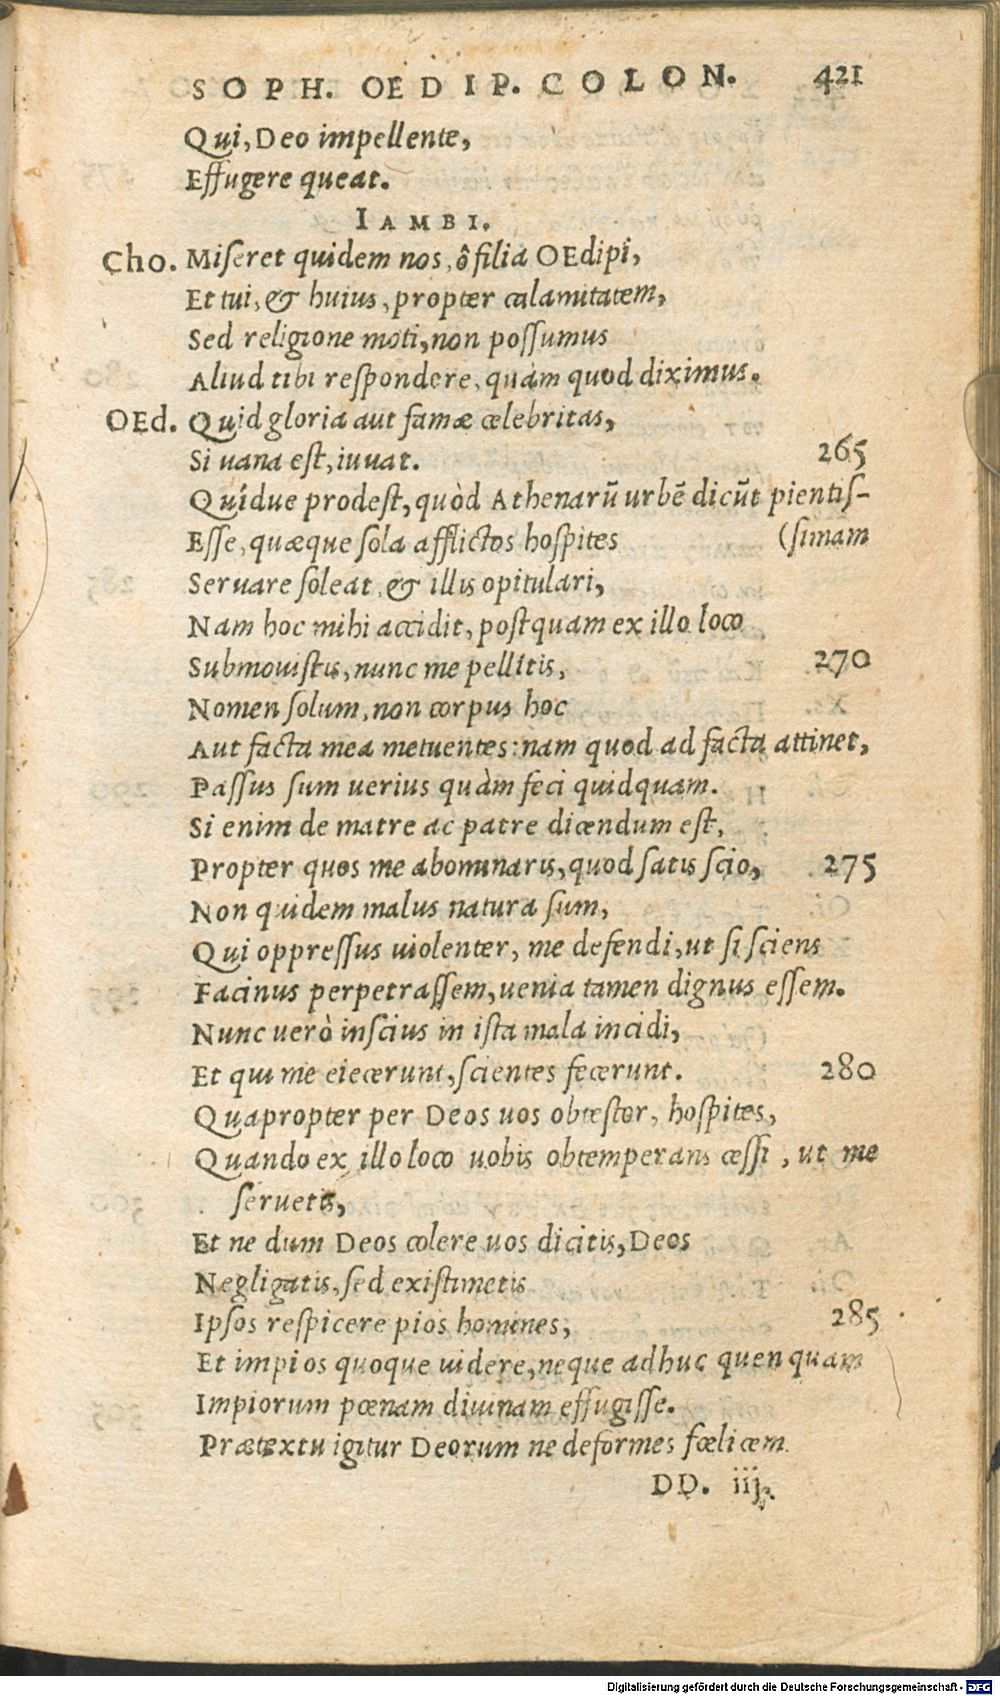 SOPH. OEDIP. COLON. 421
Qui, Deo impellente,
Effugere queat.
IAMBI.
Cho. Miſeret quidem nos, ô filia OEdipi,
Et tui, & huius, propter calamitatem,
Sed religione moti, non poſſumus
Aliud tibi reſpondere, quàm quod diximus.
OEd. Quid gloria aut famæ celebritas,
Si uana eſt, iuuat. 265
Quídue prodeſt, quòd Athenarū urbē dicūt pientiſ-
Eſſe, quæque ſola afflictos hoſpites (ſimam
Seruare ſoleat, & illis opitulari,
Nam hoc mihi accidit, poſtquam ex illo loco
Submouiſtis, nunc me pellitis, 270
Nomen ſolum, non corpus hoc
Aut facta mea metuentes: nam quod ad facta attinet,
Paſſus ſum uerius quàm feci quidquam.
Si enim de matre ac patre dicendum eſt,
Propter quos me abominaris, quod ſatis ſcio, 275
Non quidem malus natura ſum,
Qui oppreſſus uiolenter, me defendi, ut ſi ſciens
Facinus perpetraſſem, uenia tamen dignus eſſem.
Nunc uerò inſcius in iſta mala incidi,
Et qui me eiecerunt, ſcientes fecerunt. 280
Quapropter per Deos uos obteſtor, hoſpites,
Quando ex illo loco uobis obtemperans ceſſi, ut me
ſeruetis,
Et ne dum Deos colere uos dicitis, Deos
Negligatis, ſed exiſtimetis
Ipſos reſpicere pios homines, 285
Et impios quoque uidere, neque adhuc quenquam
Impiorum pœnam diuinam effugiſſe.
Prætextu igitur Deorum ne deformes fœlicem
DD. iij.
Digitalisierung gefördert durch die Deutsche Forschungsgemeinschaft - DFG